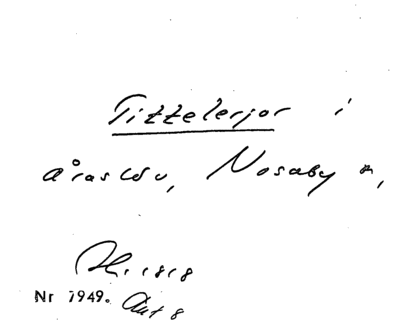 Tittelerjor i
Åraslöv, Nosaby sn,
H. 1818
Nr 1949. Akt 8